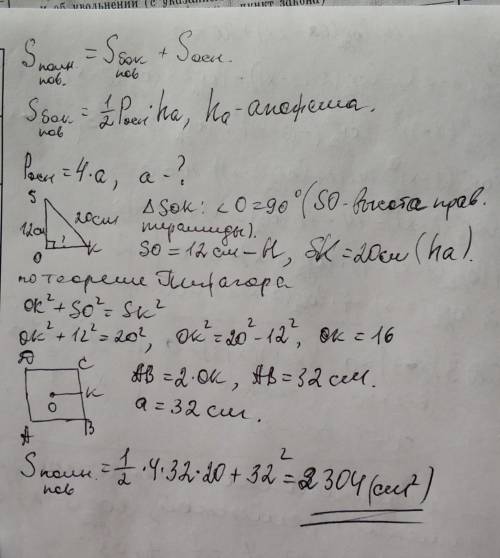 об увольнении (с указа
пункт закона)
Sполн. пов. = Sбок пов + Sосн.
Sбок пов = 1/2 Pосн · ha, ha - апофема.
Pосн = 4·a, a - ?
S
12см 20см
O ? K
ΔSOK: <O=90° (SO - высота прав.
пирамиды).
SO = 12 см - H, SK = 20см (ha).
по теореме Пифагора
OK² + SO² = SK²
OK² + 12² = 20², OK² = 20² - 12², OK = 16
D C
O K
A B
AB = 2·OK, AB = 32 см.
a = 32 см.
Sполн. пов = 1/2 · 4·32·20 + 32² = 2304 (см²)